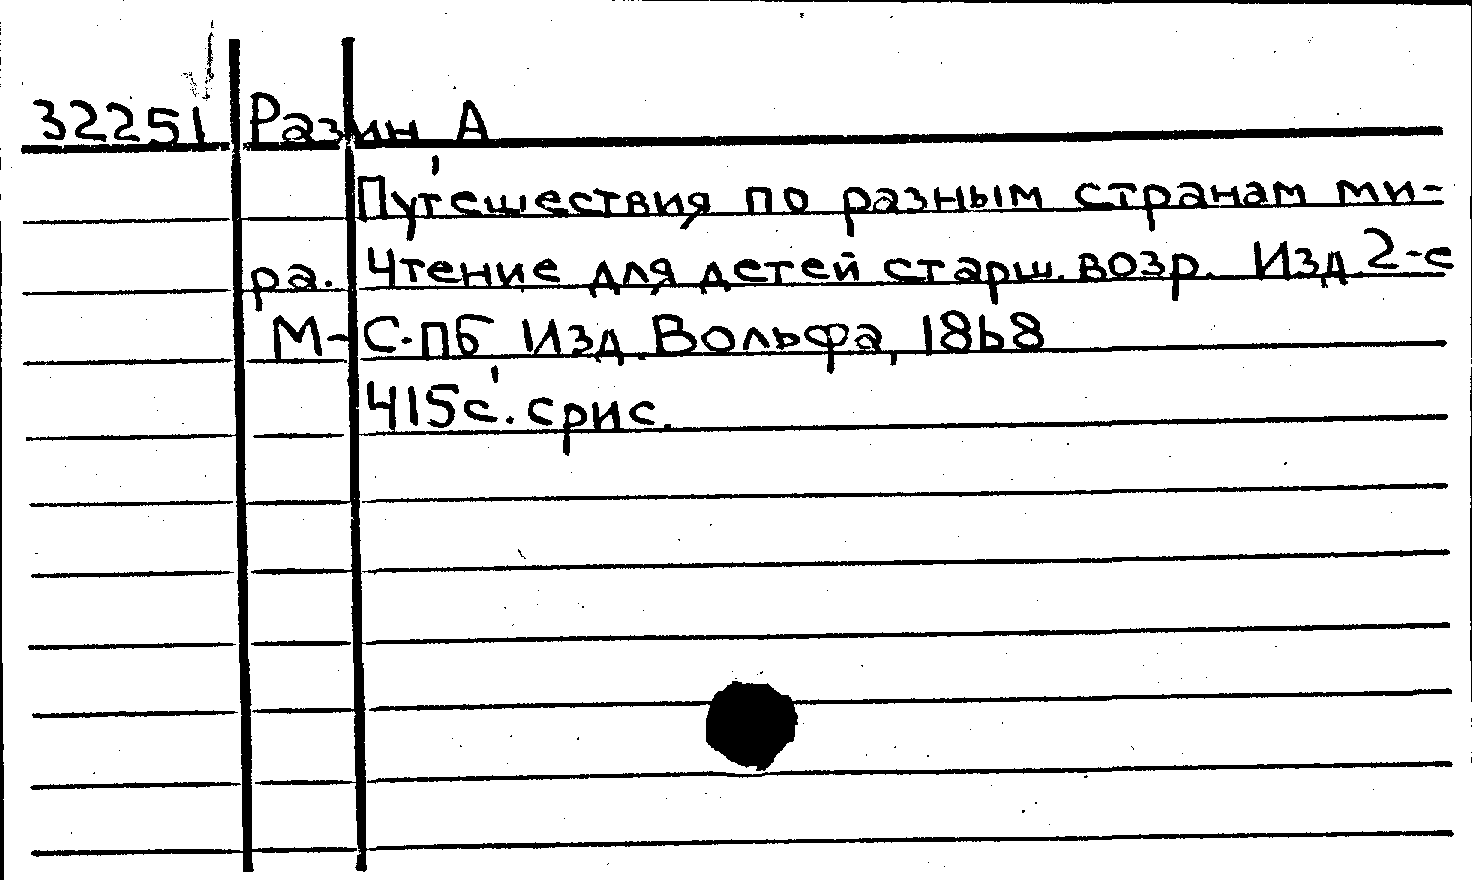 32251 Разин А
Путешествия по разным странам ми-
ра. Чтение для детей старш. возр. Изд. 2-е
М-С-ПБ Изд. Вольфа, 1868
415с. с рис.